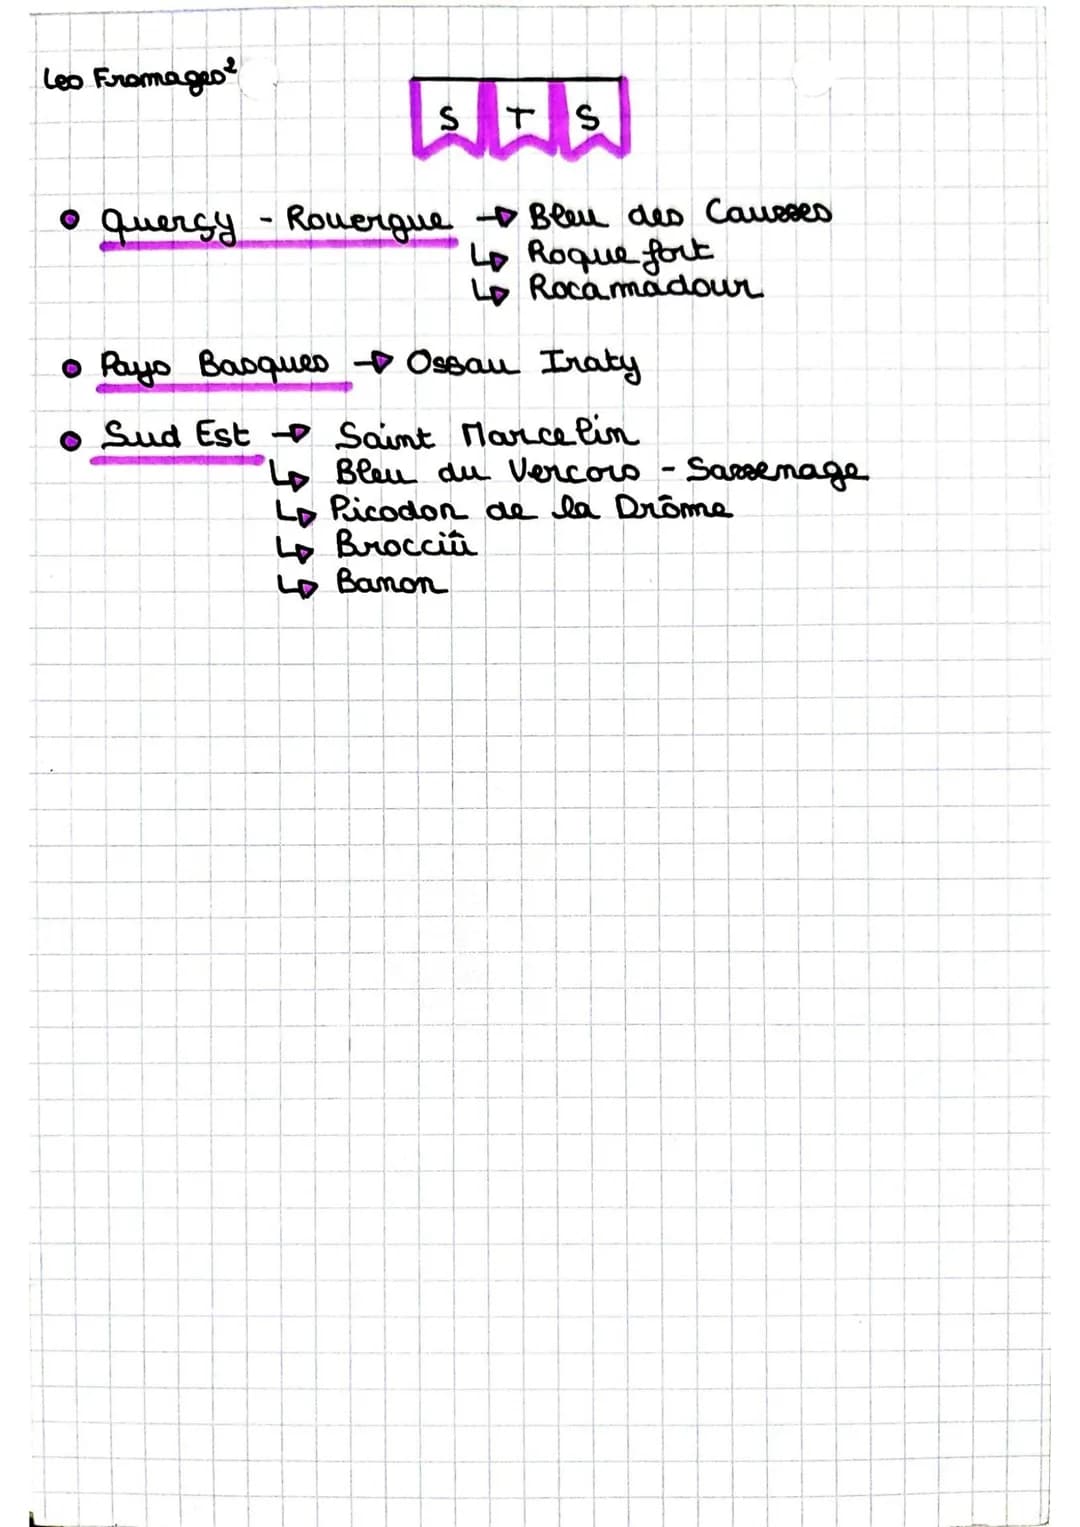 Les Fromages²
S T S
Quercy - Rouergue → Bleu des Causses
↳ Roquefort
↳ Rocamadour
Pays Basques → Ossau Iraty
Sud Est → Saint Marcelin
↳ Bleu du Vercors - Sassenage
↳ Picodon de la Drôme
↳ Brocciü
↳ Banon